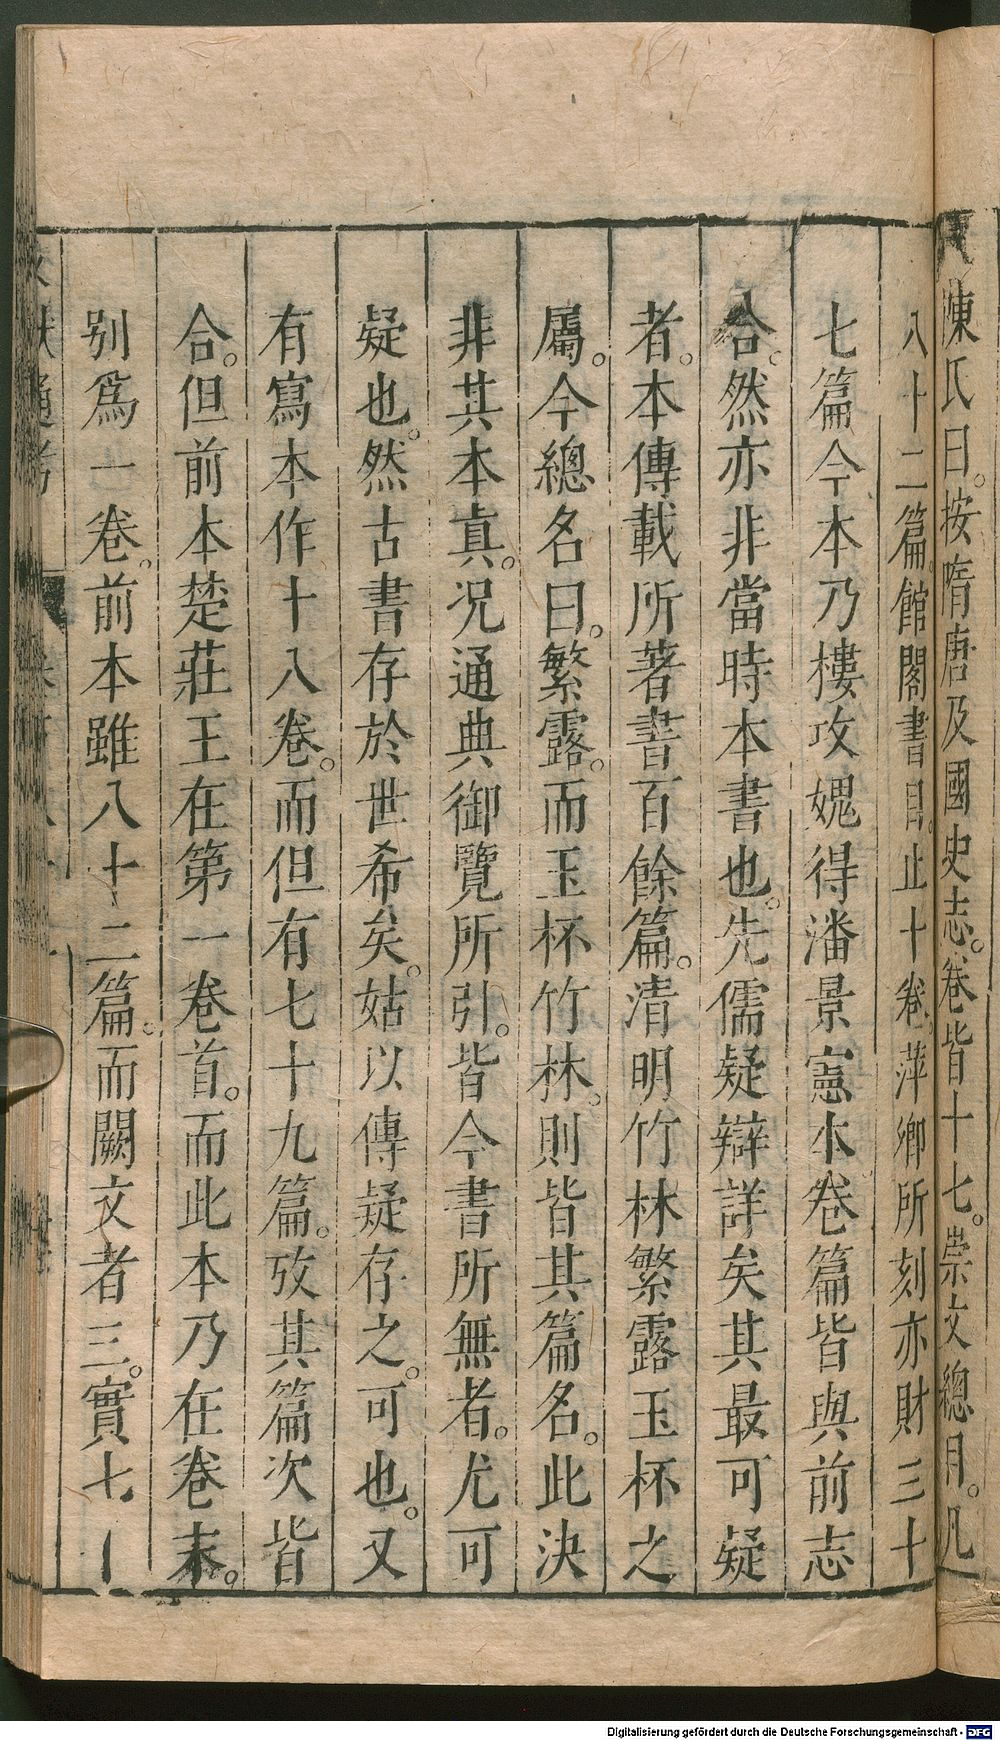 陳氏曰。按隋唐及國史志。卷皆十七。崇文總目。凡
八十二篇。館閣書目。止十卷。萍鄉所刻亦財三十
七篇今本乃樓攻媿得潘景憲本卷篇皆與前志
合。然亦非當時本書也。先儒疑辯詳矣其最可疑
者。本傳載所著書百餘篇。清明竹林繁露玉杯之
屬。今總名曰。繁露。而玉杯竹林。則皆其篇名。此決
非其本真。况通典御覽所引。皆今書所無者。尤可
疑也。然古書存於世希矣。姑以傳疑存之。可也。又
有寫本作十八卷。而但有七十九篇。攷其篇次皆
合。但前本楚莊王在第一卷首。而此本乃在卷末。
别爲一卷。前本雖八十二篇。而闕文者三。實七
文獻通考
Digitalisierung gefördert durch die Deutsche Forschungsgemeinschaft - DFG